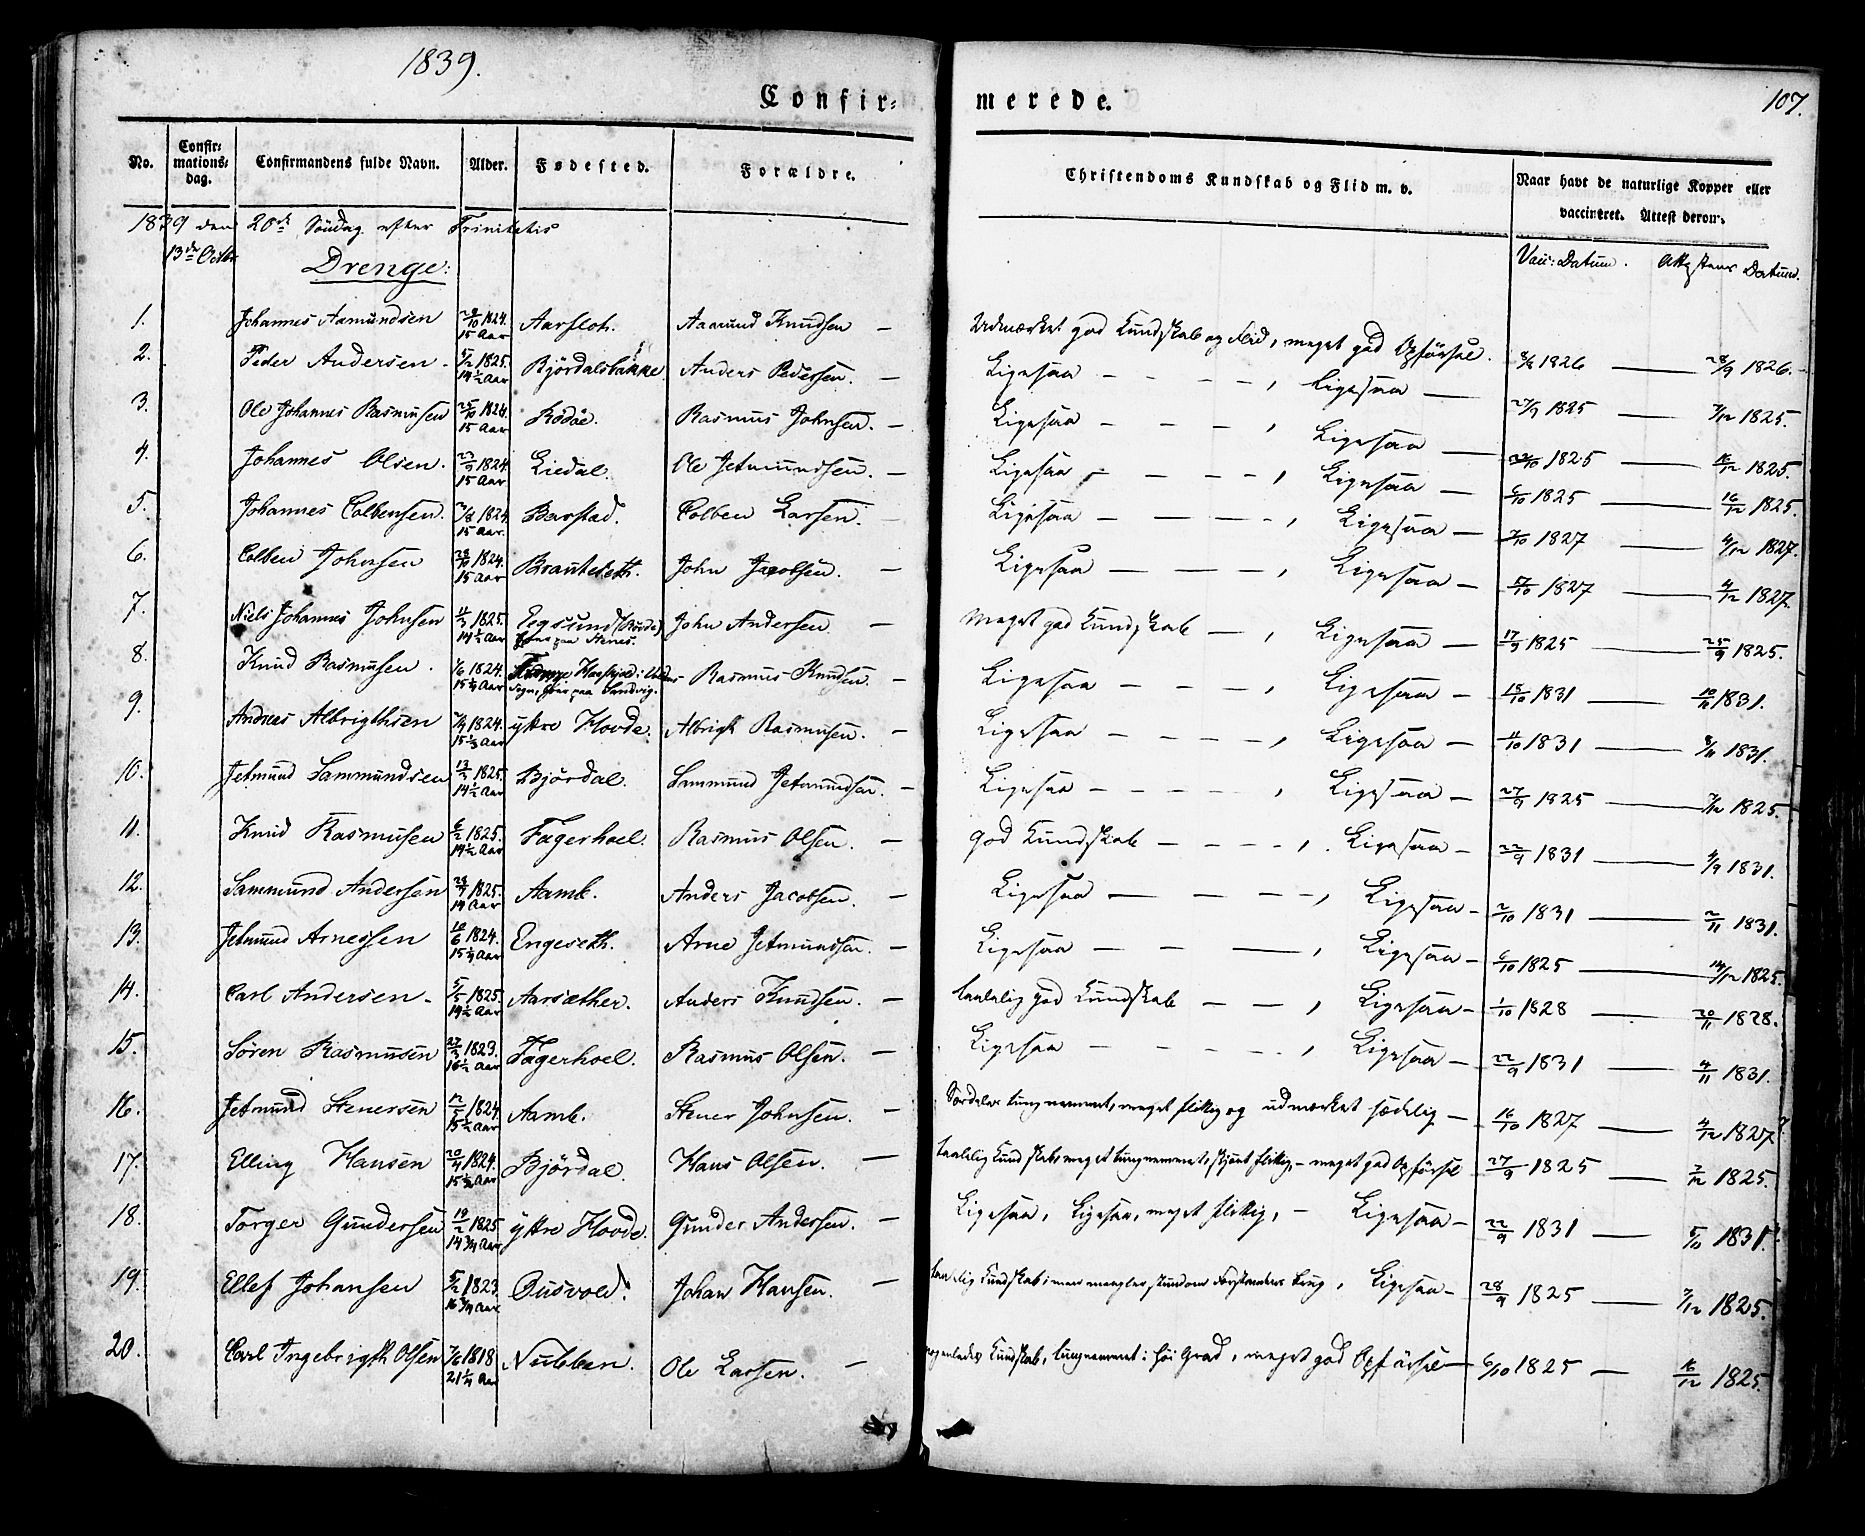 1839.
Confir= merede. 107.
No. Confir=mations=dag. Confirmandens fulde Navn. Alder. Fødested. Forældre. Christendoms Kundskab og Flid m. v. Naar havt de naturlige Kopper eller vaccineret. Attest derom.
1839 den 20de Söndag efter Trinitatis
13de Octbr Drenge: Vacc: Datum. Attestens Datum.
1. Johannes Aamundsen 1824. 15 Aar Aarsloh. Aamund Knudsen — Udmærket god Kundskab og Flid, meget god Opförsel. 1826 — 28/9 1826.
2. Peder Andersen. 5/2 1825. 14½ Aar Björdalsbakke Anders Pedersen. — Ligesaa — — — —, Ligesaa — 27/9 1825 — 7/12 1825.
3. Ole Johannes Rasmusen 25/10 1824. 15 Aar Rödöe. Rasmus Johnsen. — Ligesaa — — — —, Ligesaa — 1825 — 16/12 1825.
4. Johannes Olsen. 23/9 1824. 15 Aar Liedal. Ole Jetmundsen. — Ligesaa — — — —, Ligesaa — 6/10 1825 — 16/12 1825.
5. Johannes Colbensen. 1824 15 Aar. Barstad. Colben Larsen. — Ligesaa — — — —, Ligesaa — 1827 — 4/12 1827.
6. Colben Johnsen 28/10 1824. 15 Aar Brauteseth. John Jacobsen. — Ligesaa — — — —, Ligesaa — 1827 — 4/12 1827.
7. Niels Johannes Johnsen 1825. 14½ Aar Eegsund (Rövde) John Andersen — Meget god Kundskab —, Ligesaa — 17/9 1825 — 25/9 1825.
paa Stenes.
8. Knud Rasmusen. 1/6 1824. 15¼ Aar Rasmus Knudsen. — Ligesaa — — — —, Ligesaa — 18/10 1831 — 1831.
Sogn, paa Sandvig.
9. Andreas Albrigthsen 1824. 15 Aar yttre Hovde. Albrigt Rasmusen. — Ligesaa — — — —, Ligesaa — 1831 — 1831.
10. Jetmund Sammundsen 13/3 1825. 14½ Aar Björdal. Sammund Jetmundsen. — Ligesaa — — — —, Ligesaa — 27/9 1825 — 7/12 1825.
11. Knud Rasmusen 6/2 1825. 14½ Aar Fagerhoel. Rasmus Olsen. — god Kundskab — — — —, Ligesaa — 22/9 1831 — 1831.
12. Sammund Andersen 1825. 14 Aar Aamb. Anders Jacobsen. — Ligesaa — — — —, Ligesaa — 2/10 1831 — 2/11 1831.
13. Jetmund Arnessen 10/6 1824. 15¼ Aar Engeseth. Arne Jetmundsen. — Ligesaa — — —, Ligesaa — 6/10 1825 — 14/12 1825.
14. Carl Andersen. 5/5 1825. 14½ Aar Aarsæther. Anders Knudsen. — taalelig god Kundskab — —, Ligesaa — 1/10 1828 — 20/11 1828.
15. Sören Rasmusen 27/3 1823. 16½ Aar Fagerhoel. Rasmus Olsen. — Ligesaa — — — —, Ligesaa — 22/9 1831 — 4/11 1831.
16. Jetmund Stenersen 12/5 1824. 15½ Aar Aamb. Stener Johnsen. — Særdeles tungnemmet, meget flittig og udmærket sædelig — 16/10 1827 — 4/12 1827.
17. Elling Hansen 20/4 1824. 15½ Aar Björdal. Hans Olsen. — taalelig Kundskab, meget tungnemmet, skjönt flittig — meget god Opförsel 27/9 1825 — 7/12 1825.
18. Torger Gundersen 19/2 1825 14¾ Aar yttre Hovde. Gunder Andersen. — Ligesaa, Ligesaa, meget flittig, — Ligesaa — 22/9 1831 — 1831.
19. Ellef Johansen 5/2 1823. 16¾ Aar Busvold. Johan Hansen. — taalelig Kundskab; men mangler stundom Forstandens Brug, Ligesaa — 28/9 1825 — 7/12 1825.
20. Carl Ingebrigth Olsen 7/6 1818 21¼ Aar Nubben. Ole Larsen. — Kundskab, tungnemmet i høi Grad, meget god Opförsel — 6/10 1825 — 16/12 1825.